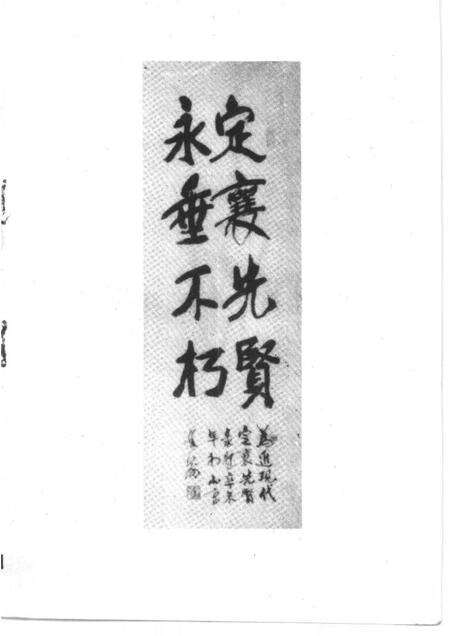 定襄先賢
永垂不朽
為近現代
定襄先賢